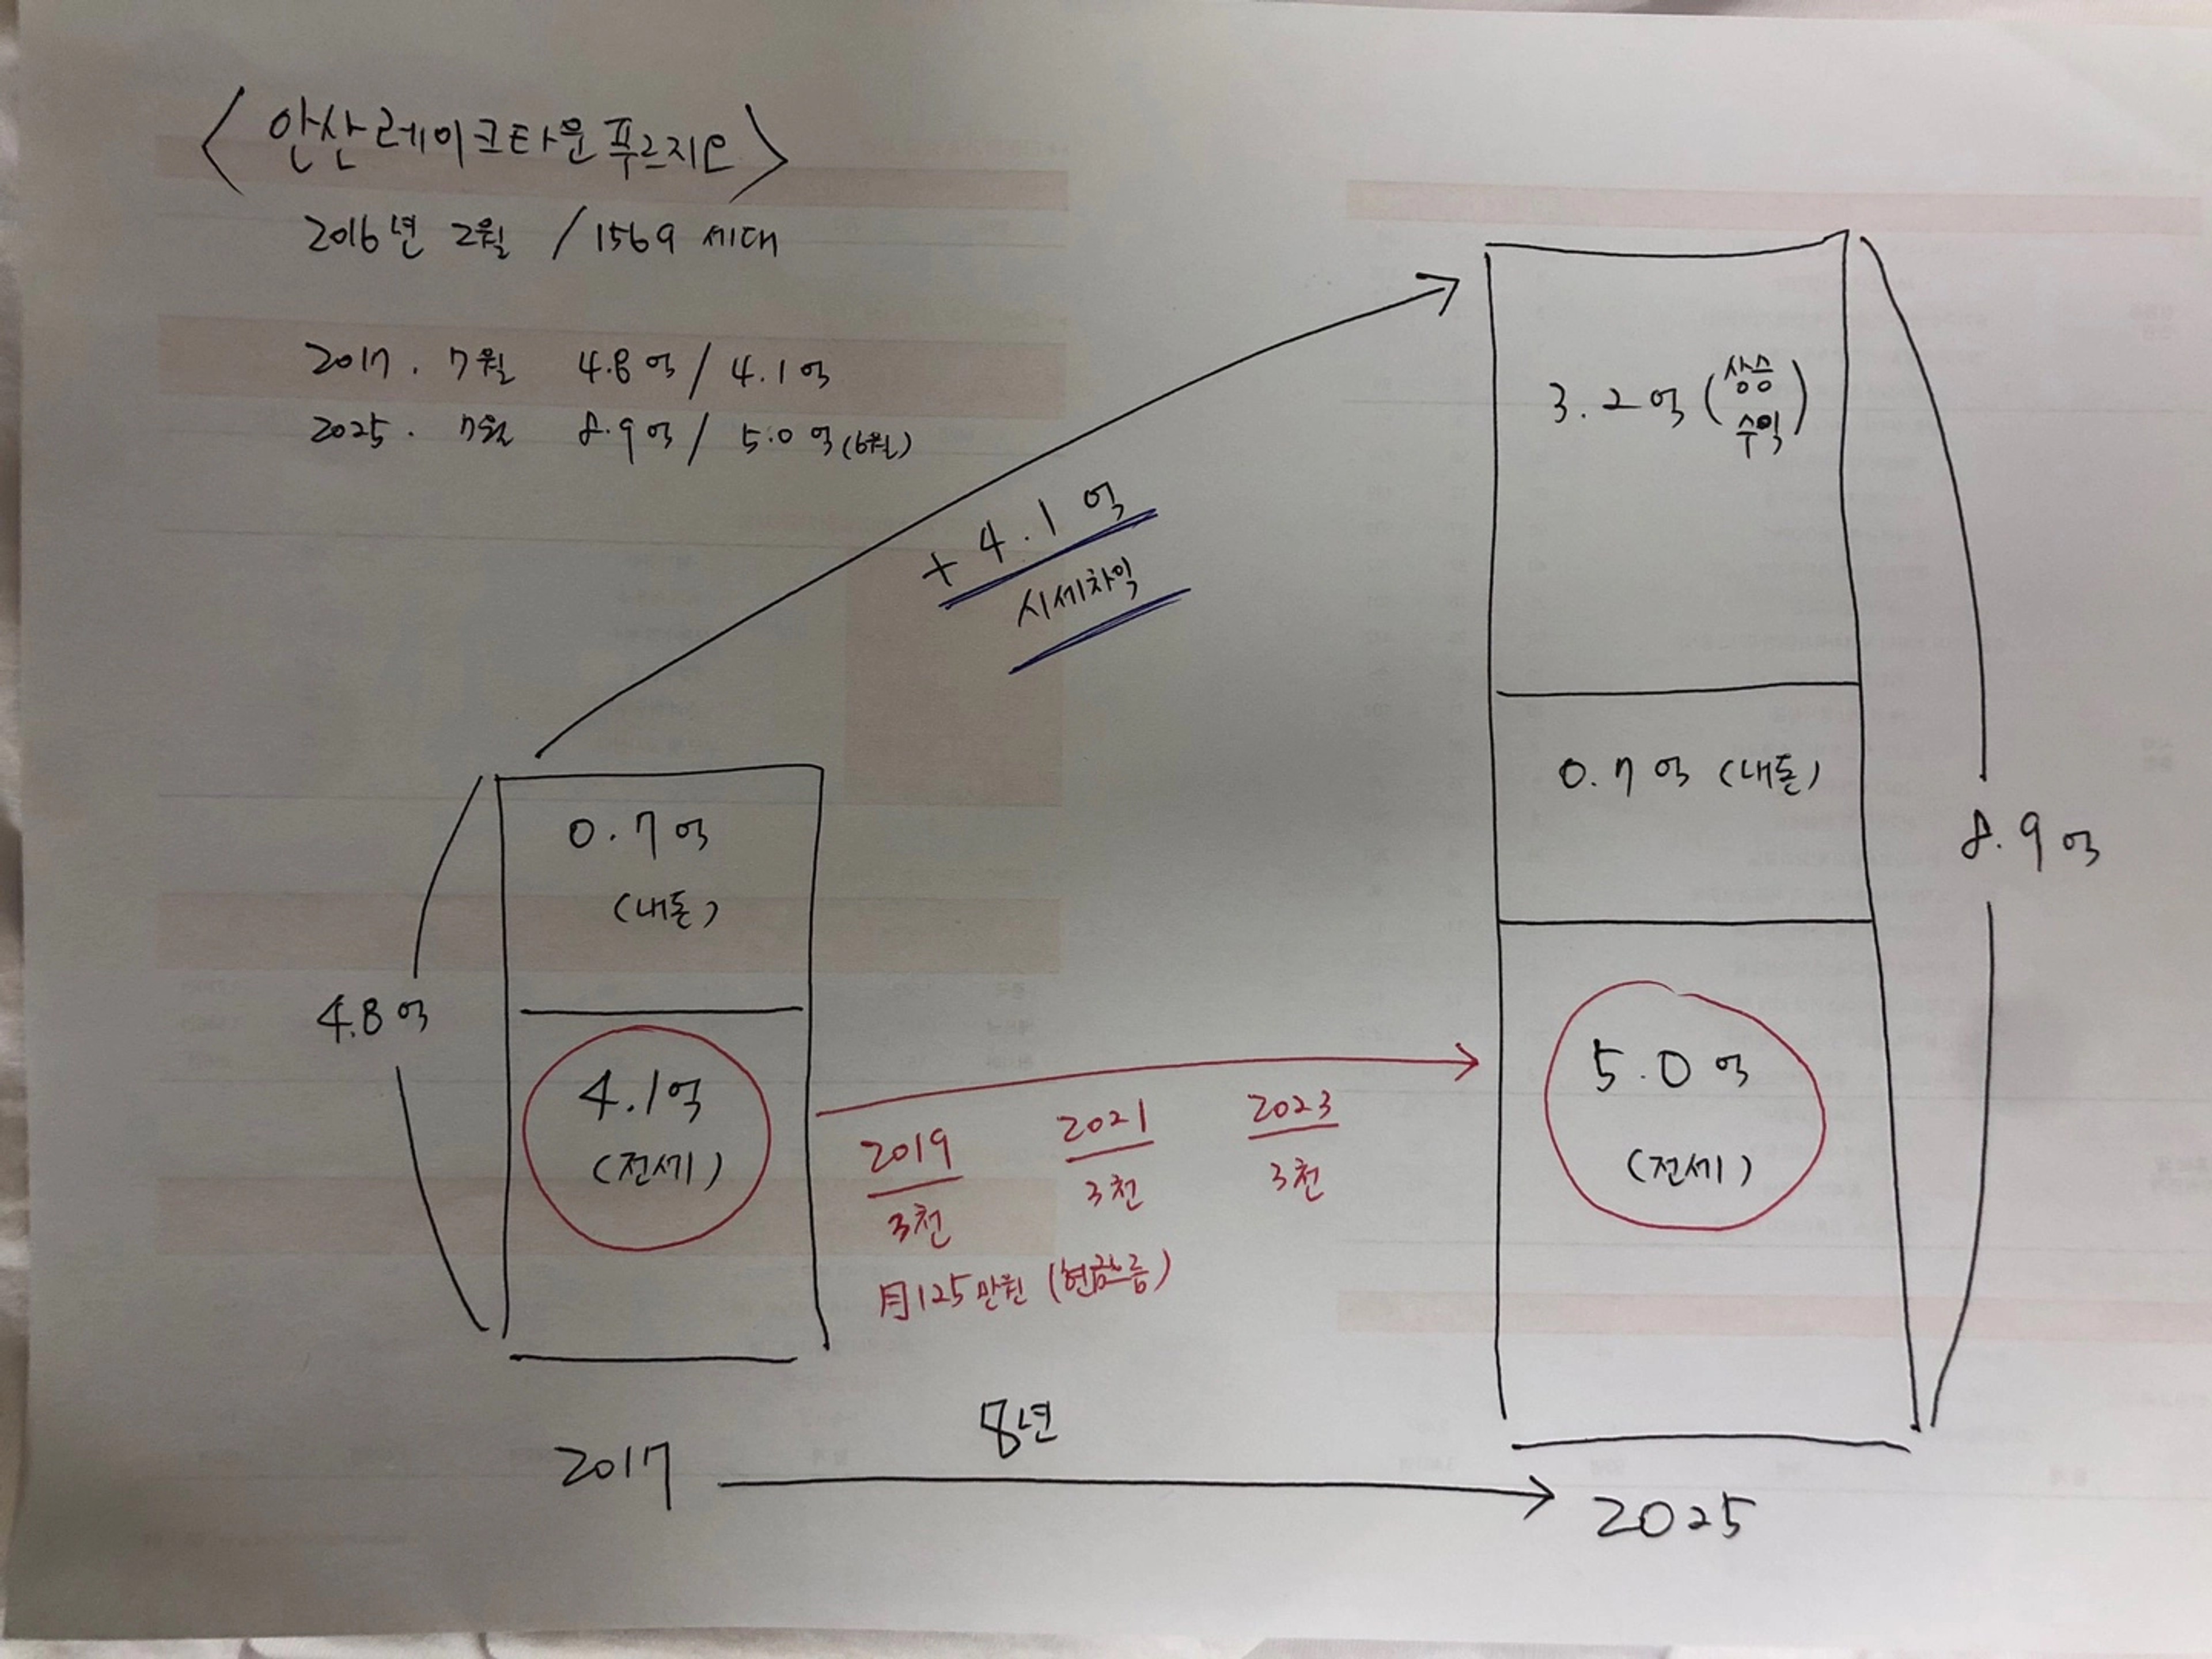 <안산레이크타운푸르지오>
2016년 2월 / 1569 세대
2017. 7월 4.8억 / 4.1억
2025. 7월 8.9억 / 5.0억(6월)
+4.1억
시세차익
3.2억(상승수익)
0.7억(내돈)
5.0억
(전세)
8.9억
0.7억
(내돈)
4.1억
(전세)
4.8억
2019
3천
2021
3천
2023
3천
月125만원 (현금흐름)
8년
2017
2025